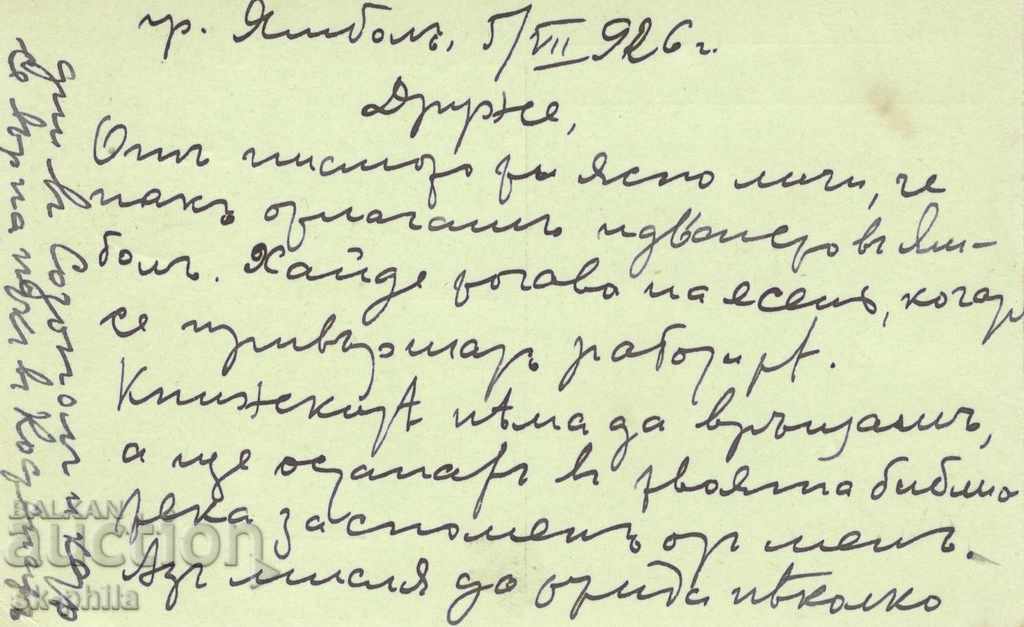 гр. Ямболъ, 5/VII 926 г.
Друже,
Отъ писмото ти ясно личи, че
пакъ отлагашъ идването въ Ям-
болъ. Хайде тогава на есень, когато
се привършатъ работитѣ.
Книжкитѣ нѣма да връщашъ,
а ще останатъ въ твоята библио
тека за споменъ отъ менъ.
Азъ мисля да отида нѣколко
дни въ Созополъ и
се върна въ
BALKAN
auction
sk-phila